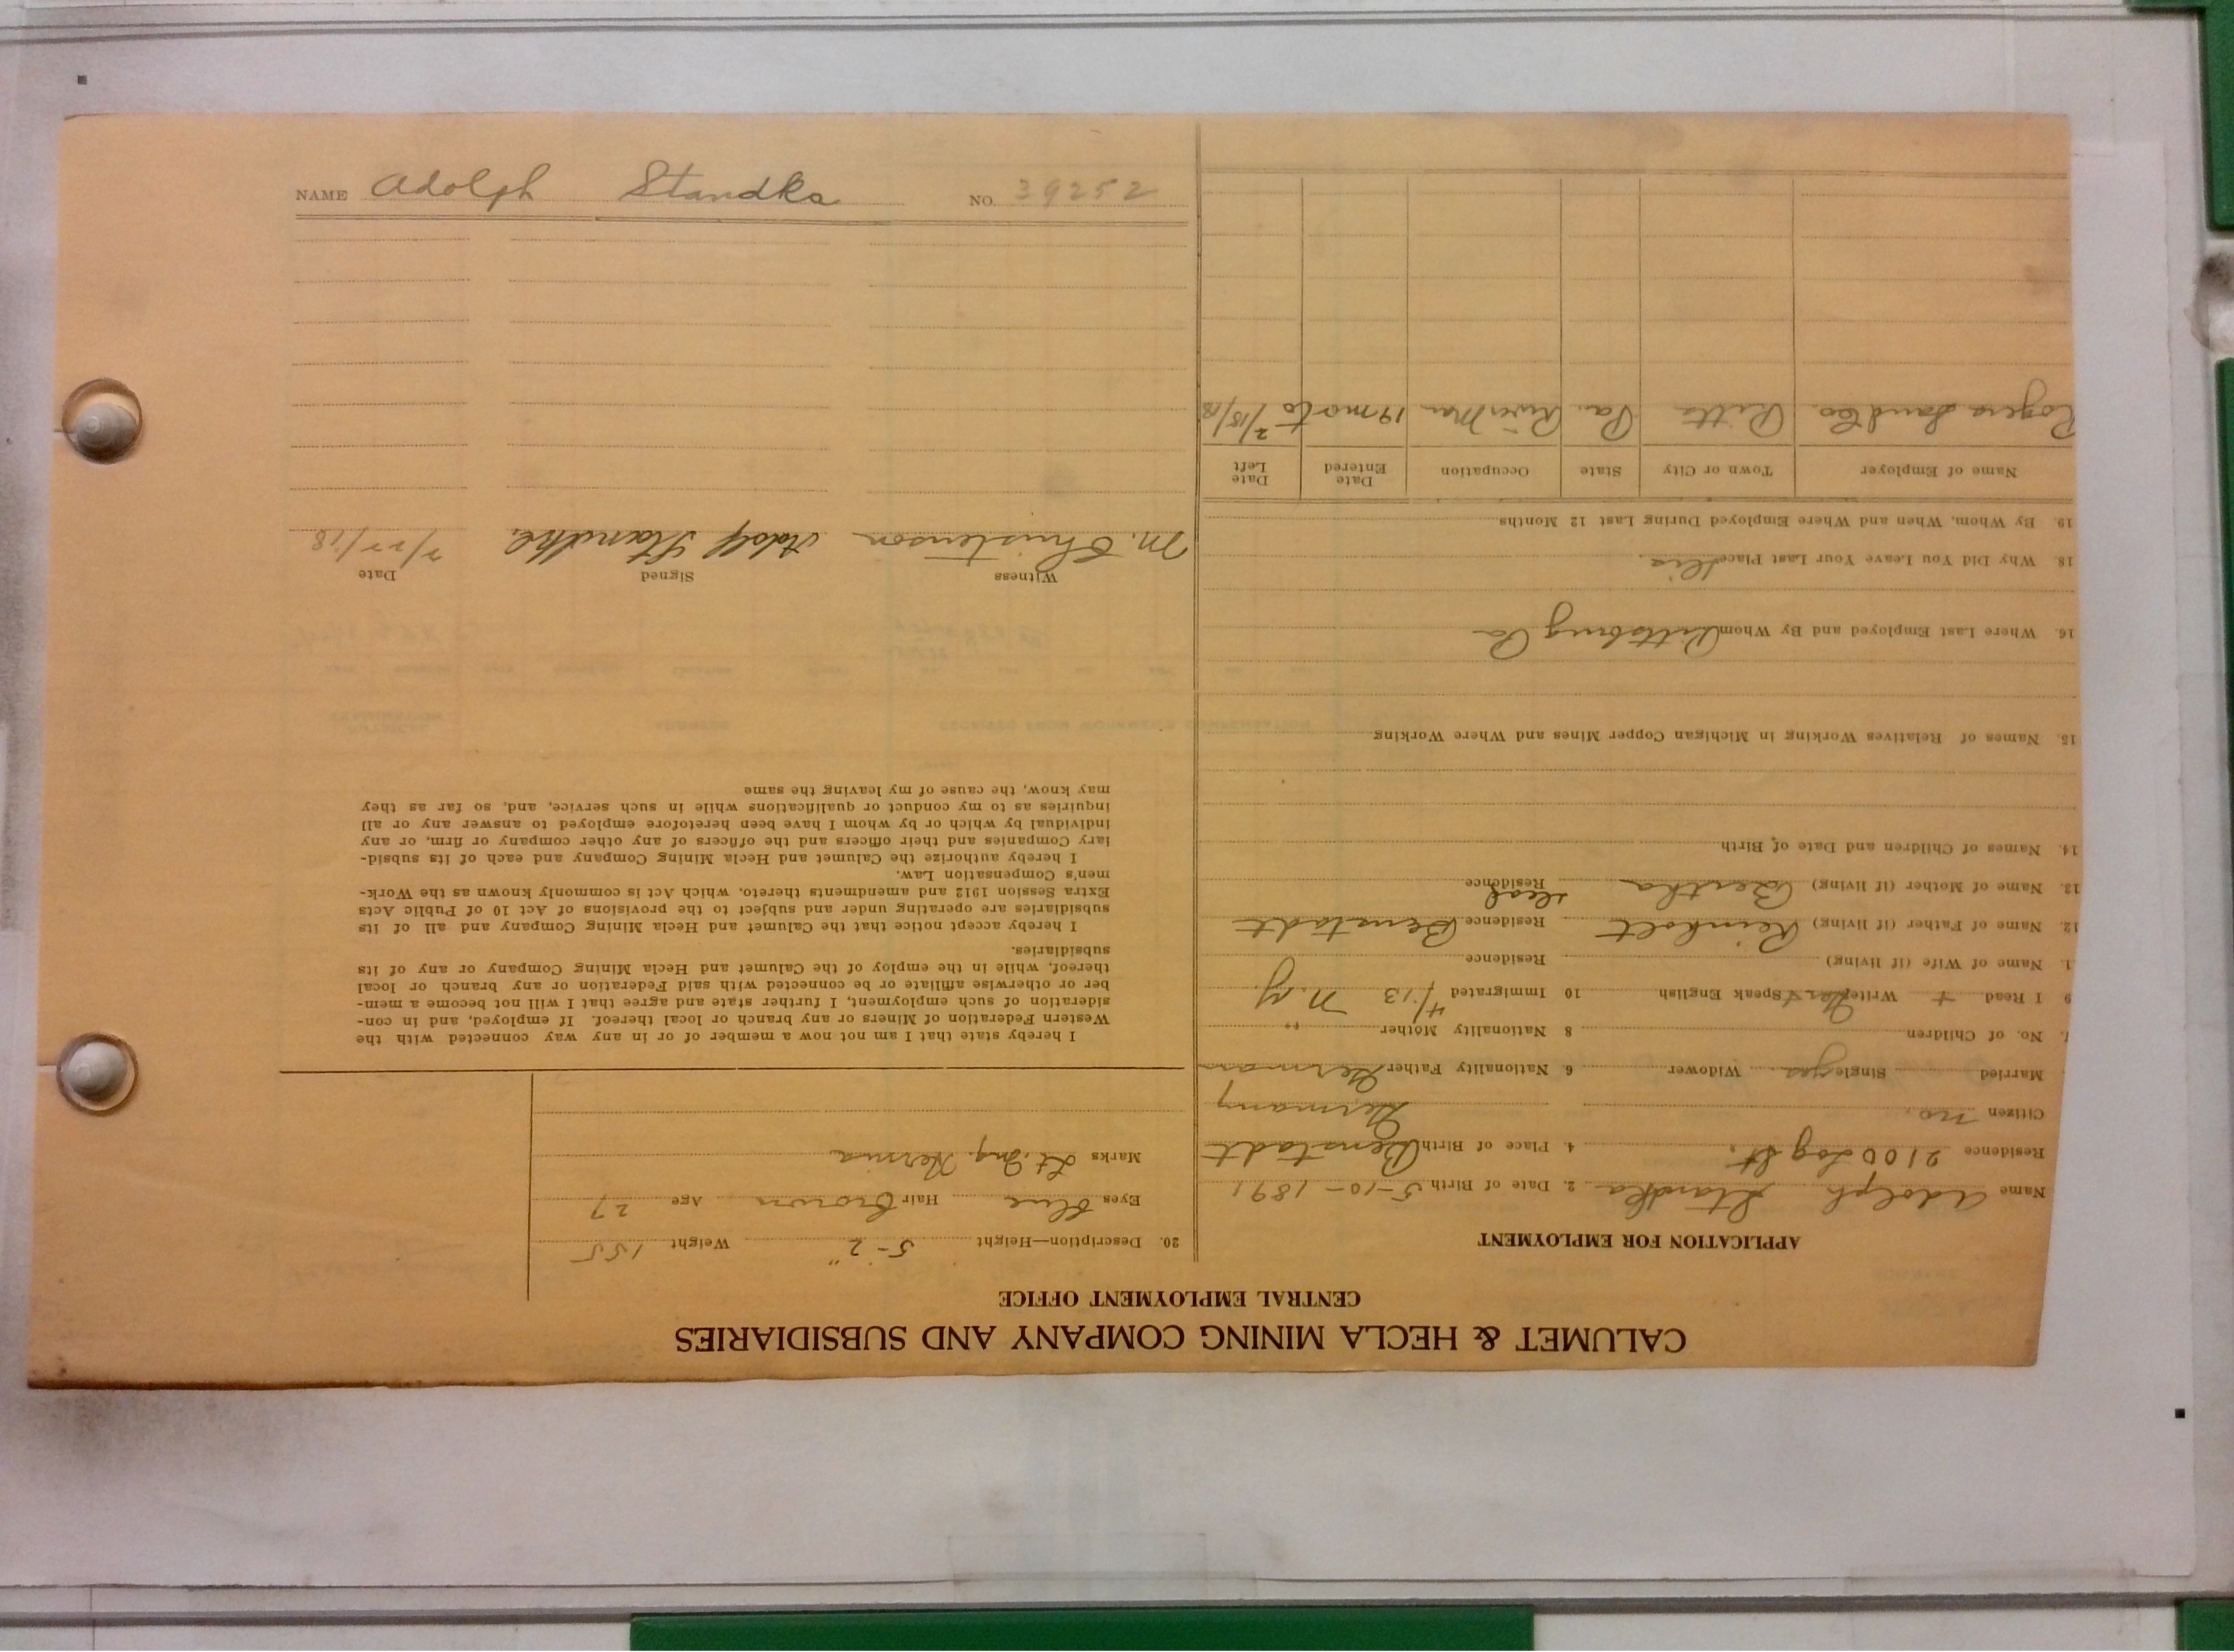 CALUMET & HECLA MINING COMPANY AND SUBSIDIARIES
CENTRAL EMPLOYMENT OFFICE
APPLICATION FOR EMPLOYMENT
Name Adolph Standka 2. Date of Birth 5-10-1891
Residence 2100 Log St. 4. Place of Birth Benstadt
Citizen no. Germany
Married Single yes Widower 6. Nationality Father German
No. of Children 8 Nationality Mother "
9 I Read + Write Speak English 10 Immigrated 4/13 N.Y.
1. Name of Wife (if living) Residence
12. Name of Father (if living) Reinholt Residence Benstadt
13. Name of Mother (if living) Bertha Residence dead
14. Names of Children and Date of Birth
15. Names of Relatives Working in Michigan Copper Mines and Where Working
16. Where Last Employed and By Whom Pittsburg Pa
18. Why Did You Leave Your Last Place
19. By Whom, When and Where Employed During Last 12 Months
Name of Employer Town or City State Occupation Date Entered Date Left
Rogers Sand Co. Pitts Pa. River Man 19 mo to 2/15/18
20. Description—Height 5-2" Weight 155
Eyes Blue Hair Brown Age 27
Marks Lt. Ing. Hernia
I hereby state that I am not now a member of or in any way connected with the
Western Federation of Miners or any branch or local thereof. If employed, and in con-
sideration of such employment, I further state and agree that I will not become a mem-
ber or otherwise affiliate or be connected with said Federation or any branch or local
thereof, while in the employ of the Calumet and Hecla Mining Company or any of its
subsidiaries.
I hereby accept notice that the Calumet and Hecla Mining Company and all of its
subsidiaries are operating under and subject to the provisions of Act 10 of Public Acts
Extra Session 1912 and amendments thereto, which Act is commonly known as the Work-
men's Compensation Law.
I hereby authorize the Calumet and Hecla Mining Company and each of its subsid-
iary Companies and their officers and the officers of any other company or firm, or any
individual by which or by whom I have been heretofore employed to answer any or all
inquiries as to my conduct or qualifications while in such service, and, so far as they
may know, the cause of my leaving the same
Witness Signed Date
M. Christenson Adolf Standke. 2/27/18
NAME Adolph Standka NO. 39252